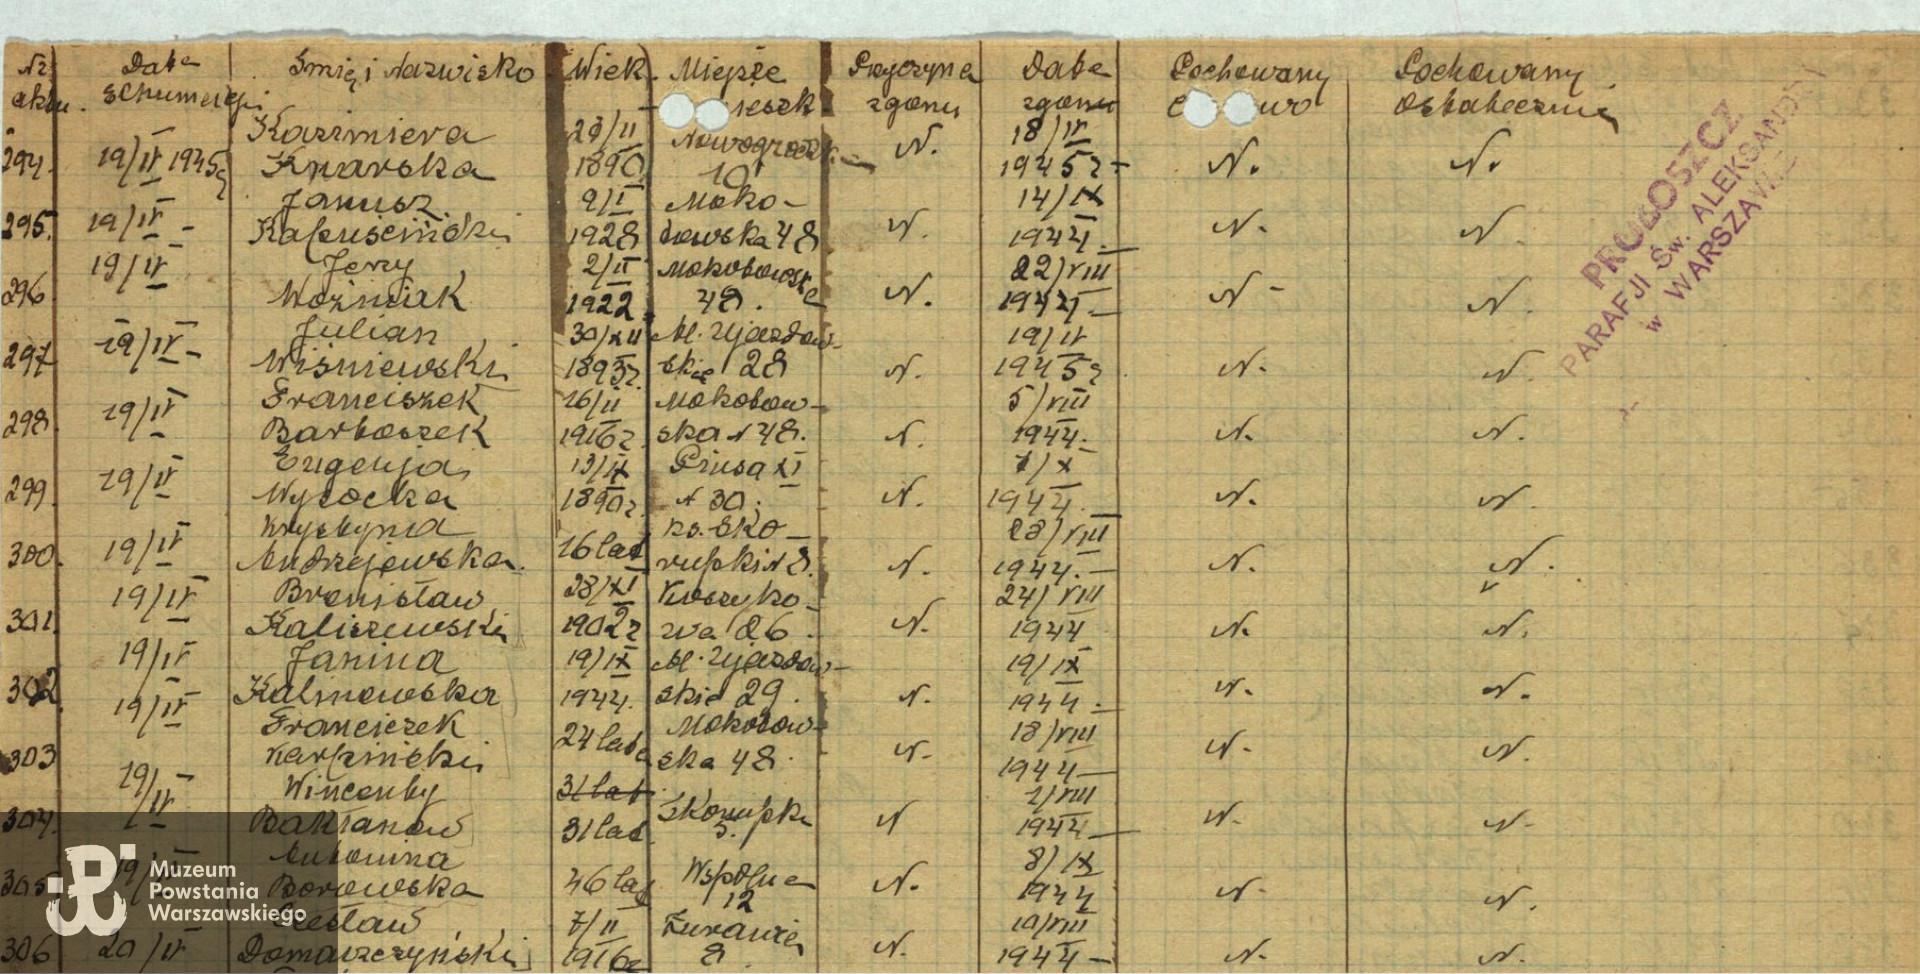 Nr Data Imię i Nazwisko Wiek Miejsce Przyczyna Data Pochowany Pochowany
aktu. zgonu zgonu ostatecznie
Kazimiera 18/IV
294. 19/IV 1945 Knarska 1890 10 N. 1945 r N. N.
Janusz 9/I Moko- 14/IX
295. 19/IV - Kapuscinski 1928 towska 48 N. 1944. N. N.
19/IV Jerzy 2/II Mokotowska 22/VIII
296. Woźniak 1922 48. N. 1944 N - N.
Julian 30/XII Al. Ujazdow- 19/IV
297 19/IV - Wiśniewski 1893 r. skie 28 N. 1945 r N. N.
Franciszek 16/II Mokotow- 5/VIII
298. 19/IV Bartoszek 1916 r. ska N 48. N. 1944. N. N.
Eugenja 13/IX Prusa XI 1/X
299. 19/IV Wysocka 1890 r. N 30. N. 1944. N. N.
Krystyna ks. Sko- 28/VIII
300. 19/IV Andrzejewska. 16 lat rupki N 8. N. 1944. - N. N.
19/IV Bronisław 28/XI Kruczko- 24/VIII
301. Kaliszewski 1902 r 26. N. 1944 N. N.
19/IV Janina 19/IX Al. Ujazdow- 19/IX
302. Kalinowska 1944. skie 29. N. 1944. - N. N.
19/IV Franciszek Mokotow- 18/VIII
303 Karpinski 24 lata ska 48. N. 1944 - N. N.
19/IV Wincenty 31 lat 2/VIII
304. Baklanow 31 lat. Skorupki 5. N 1944 - N. N.
19/IV Antonina 8/IX
305 Borowska 46 lat Wspólna 12 N. 1944 N. N.
Czesław 7/II Żurawia 10/VIII
306 20/IV Domaszczyński 1916 r 8. N. 1944 - N. N.
PROBOSZCZ
PARAFJI Św. ALEKSANDRA
w WARSZAWIE
Muzeum
Powstania
Warszawskiego